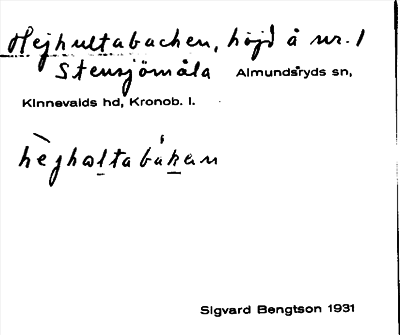 Hejhultabacken, höjd å nr. 1
Stensjömåla Almundsryds sn,
Kinnevalds hd, Kronob. l.
Sigvard Bengtson 1931